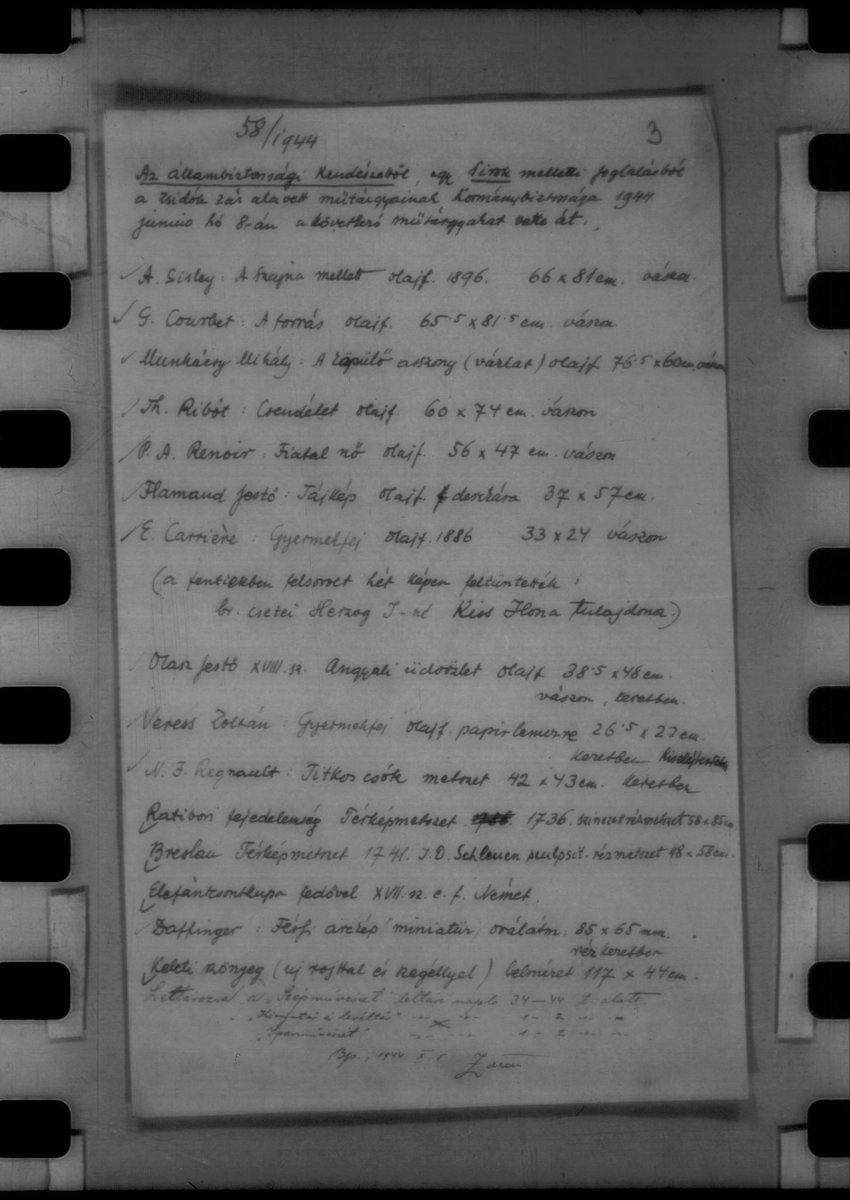 58/1944
3
Az állambiztonsági Rendészettől, egy Sirok melletti foglalásból
a Zsidók Zár alá vett műtárgyainak Kormánybiztossága 1944
junius hó 8-án a következő műtárgyakat vette át.
A. Sisley: A Szajna mellett olajf. 1896. 66 x 81 cm. vászon.
G. Courbet: A forrás olajf. 65.5 x 81.5 cm. vászon
Munkácsy Mihály: A köpülő asszony (vázlat) olajf. 76.5 x 60 cm. vászon
Th. Ribót: Csendélet olajf. 60 x 74 cm. vászon
P. A. Renoir: Fiatal nő olajf. 56 x 47 cm. vászon
Flamand festő: Tájkép olajf. deszkára 37 x 57 cm.
E. Carrière: Gyermekfej olajf. 1886 33 x 24 vászon
(a fentiekben felsorolt hét képen feltüntették:
br. csetei Herzog I-né Kiss Ilona tulajdona.)
Olasz festő XVIII. sz. Angyali üdvözlet olajf. 38.5 x 48 cm.
vászon, keretben.
Veress Zoltán: Gyermekfej olajf. papirlemezre 26.5 x 22 cm.
keretben
N. F. Regnault: Titkos csók metszet 42 x 43 cm. keretben
Ratibori fejedelemség Térképmetszet 1736. szinezett rézmetszet 58 x 85 cm.
Breslau Térképmetszet 1741. I. D. Schleuen sculpsit. rézmetszet 48 x 58 cm.
Elefántcsontkupa fedővel XVII. sz. e. f. Német.
Daffinger: Férfi arckép (miniatür) oválatm. 85 x 65 mm.
rézkeretben
Keleti szőnyeg (uj rojttal és szegéllyel) belméret 117 x 44 cm.
Leltározva a "Szépművészet" leltár napló 34-44 t. alatt
1 - 2
"Iparművészet" 1 - 2
Bp., 1944